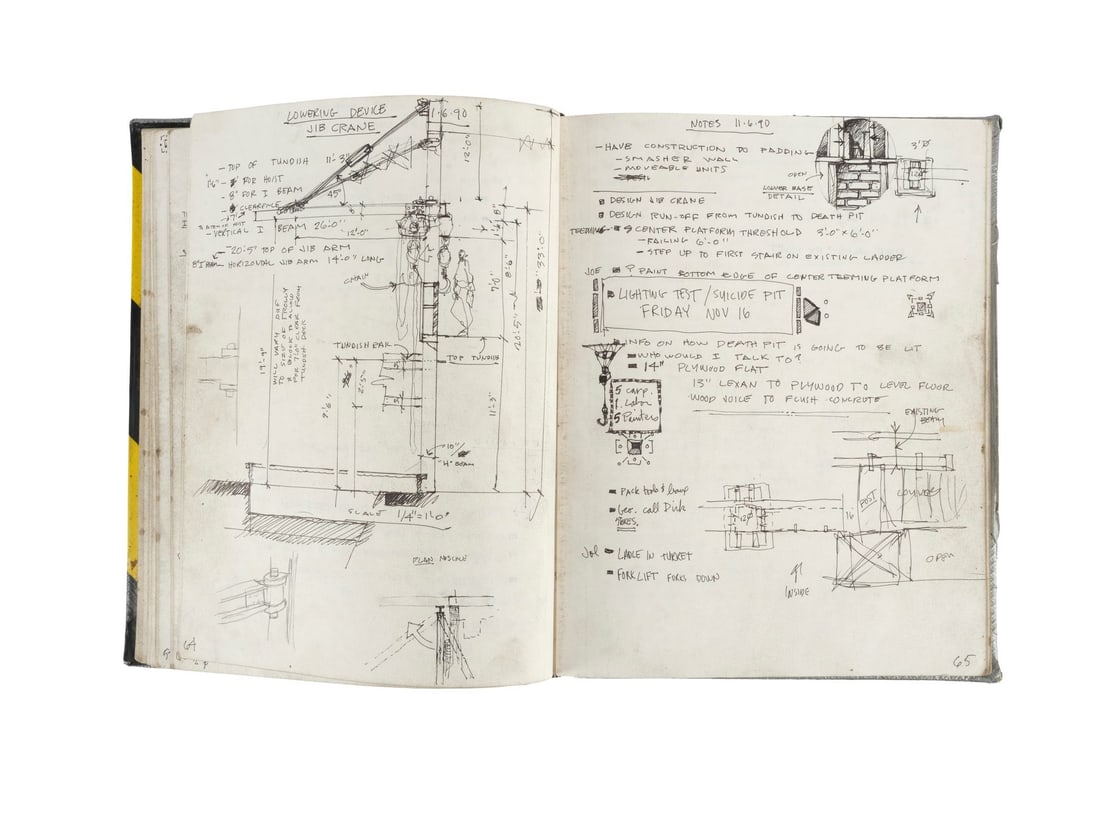 LOWERING DEVICE
JIB CRANE
11·6·90
- TOP OF TUNDISH 11'-3"
FOR HOIST
- 8" FOR I BEAM
CLEARENCE
- VERTICAL I BEAM 26'0"
20'-5" TOP OF JIB ARM
HORIZONTAL JIB ARM 14'-0" LONG
45°
12'-0"
12'-0"
CHAIN
TUNDISH EAR
TOP TUNDISH
7'-0"
8'-6"
20'-5"
33'-0"
11'-3"
19'-9"
WILL VARY DUE
TO SIZE OF TROLLY
& BLOCK TO ALLOW
FOR 7'-0" CLEAR FROM
TUNDISH DECK
2'-5"
10"
"H" BEAM
SCALE 1/4"=1'-0"
PLAN NO SCALE
64
NOTES 11·6·90
- HAVE CONSTRUCTION DO PADDING
- SMASHER WALL
- MOVEABLE UNITS
OPEN
LOWER BASE
DETAIL
3'Ø
DESIGN JIB CRANE
DESIGN RUN-OFF FROM TUNDISH TO DEATH PIT
TEEMING CENTER PLATFORM THRESHOLD 3'-0" x 6'-0"
- RAILING 6'-0"
- STEP UP TO FIRST STAIR ON EXISTING LADDER
JOE ? PAINT BOTTOM EDGE OF CENTER TEEMING PLATFORM
LIGHTING TEST / SUICIDE PIT
FRIDAY NOV 16
INFO ON HOW DEATH PIT IS GOING TO BE LIT
WHO WOULD I TALK TO?
14" PLYWOOD FLAT
13" LEXAN TO PLYWOOD TO LEVEL FLOOR
WOOD JOICE TO FLUSH CONCRETE
5 Carp.
1 Labor
5 Painters
EXISTING
BEAM
Geo. call Dick
POST
16
12Ø
OPEN
JOE - LADLE IN TURRET
- FORKLIFT FORKS DOWN
INSIDE
65